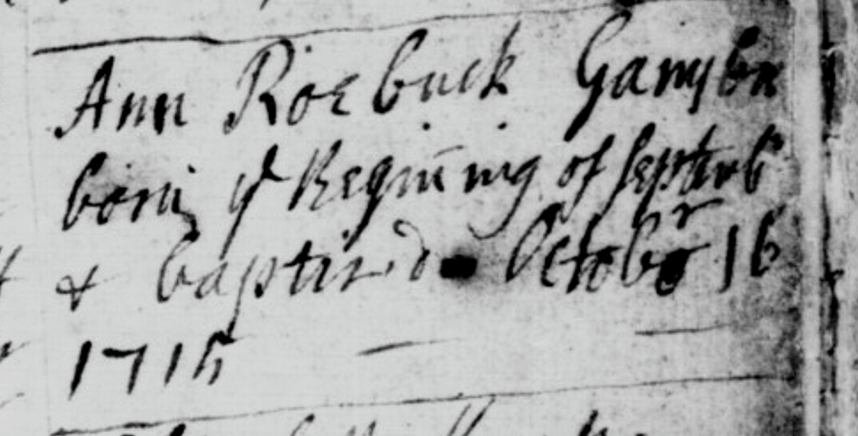 Ann Roebuck
born ye Begining of Septemb
& baptized October 16
1715